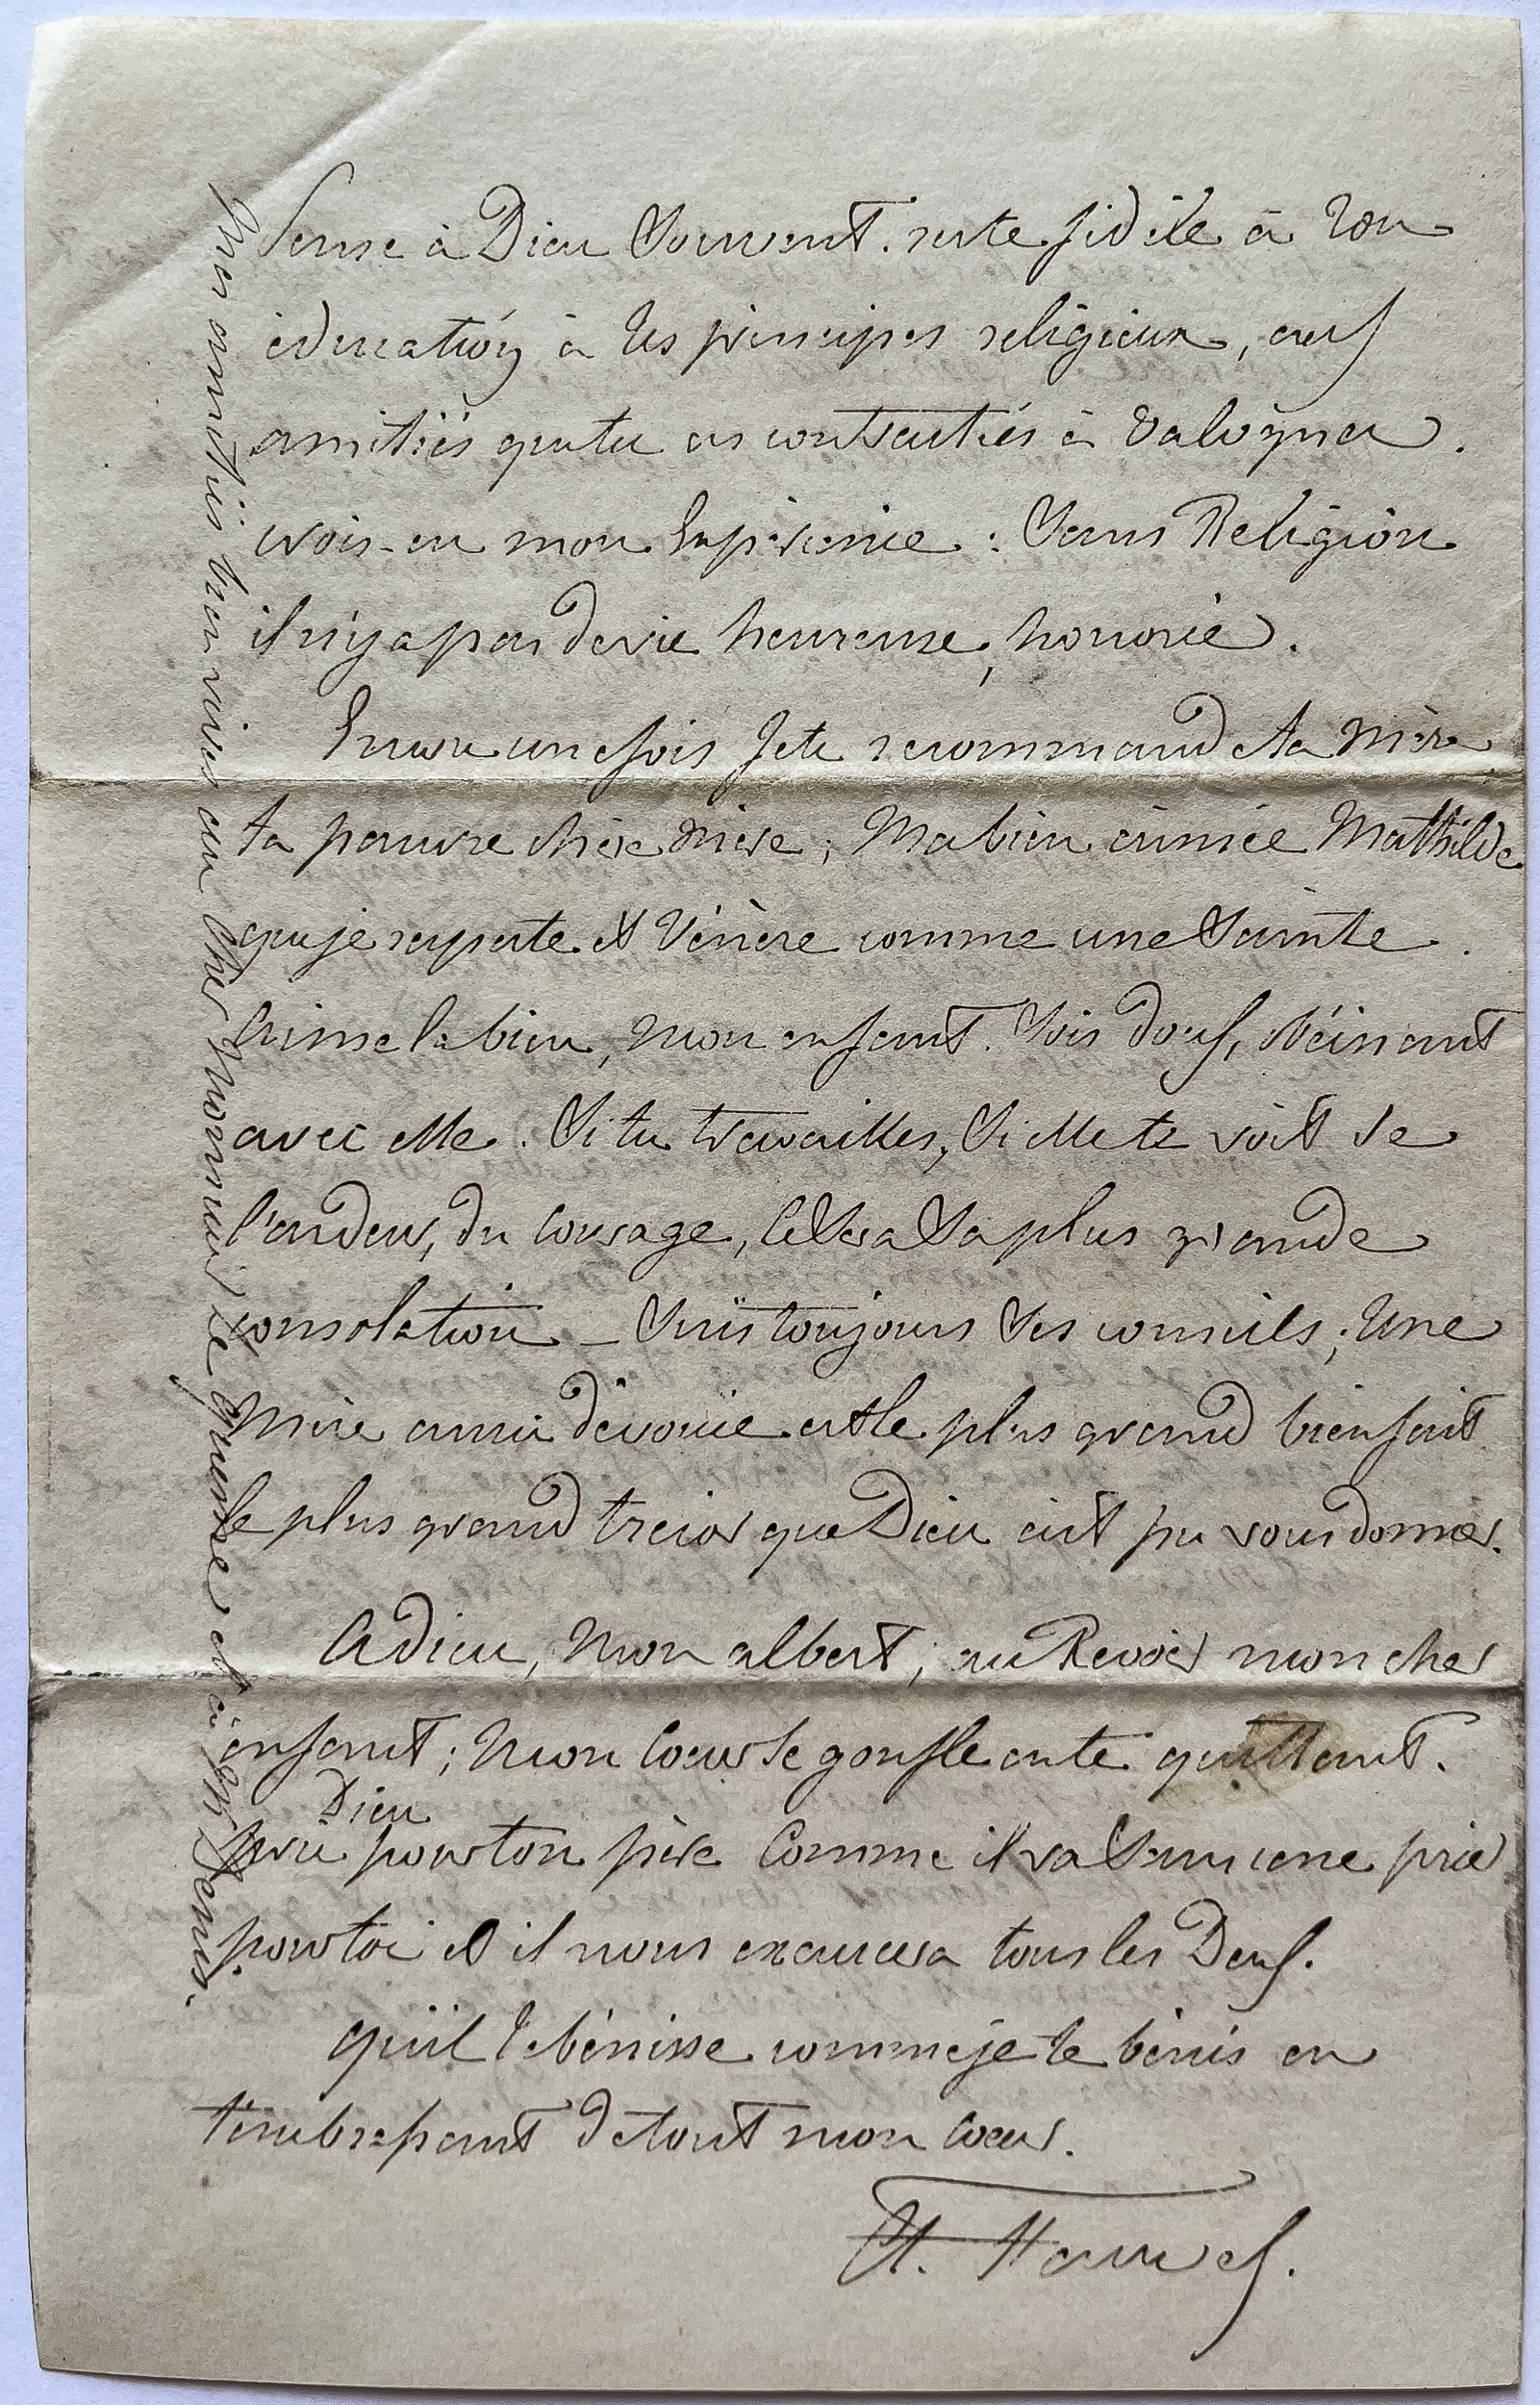 Pense à Dieu Souvent. reste fidèle à ton
éducation à tes principes religieux, aux
amitiés que tu as contractiés à Valognes.
crois-en mon Expérience : Sans Religion
il n'y a pas de vie heureuse, honorée.
Encore une fois je te recommande ta Mère
ta pauvre chère Mère ; Ma bien aimée Mathilde
que je respecte et Vénère comme une Sainte.
Aime la bien, Mon enfant. Sois doux, obéissant
avec elle. Si tu travailles, Si elle te voit de
l'ardeur, du Courage, Ce Sera Sa plus grande
consolation – Suis toujours Ses conseils ; Une
Mère amie dévouée est le plus grand bienfait
le plus grand trésor que Dieu ait pu vous donner.
Adieu, Mon albert ; au Revoir mon cher
enfant ; Mon Coeur se gonfle en te quittant.
Dieu
prie pour ton père Comme il va Sans cesse prier
pour toi et il nous exaucera tous les Deux.
qu'il te bénisse comme je te bénis en
t'embrassant de tout mon Coeur.
Mes amitiés bien vives au cher Monsieur et à Mr